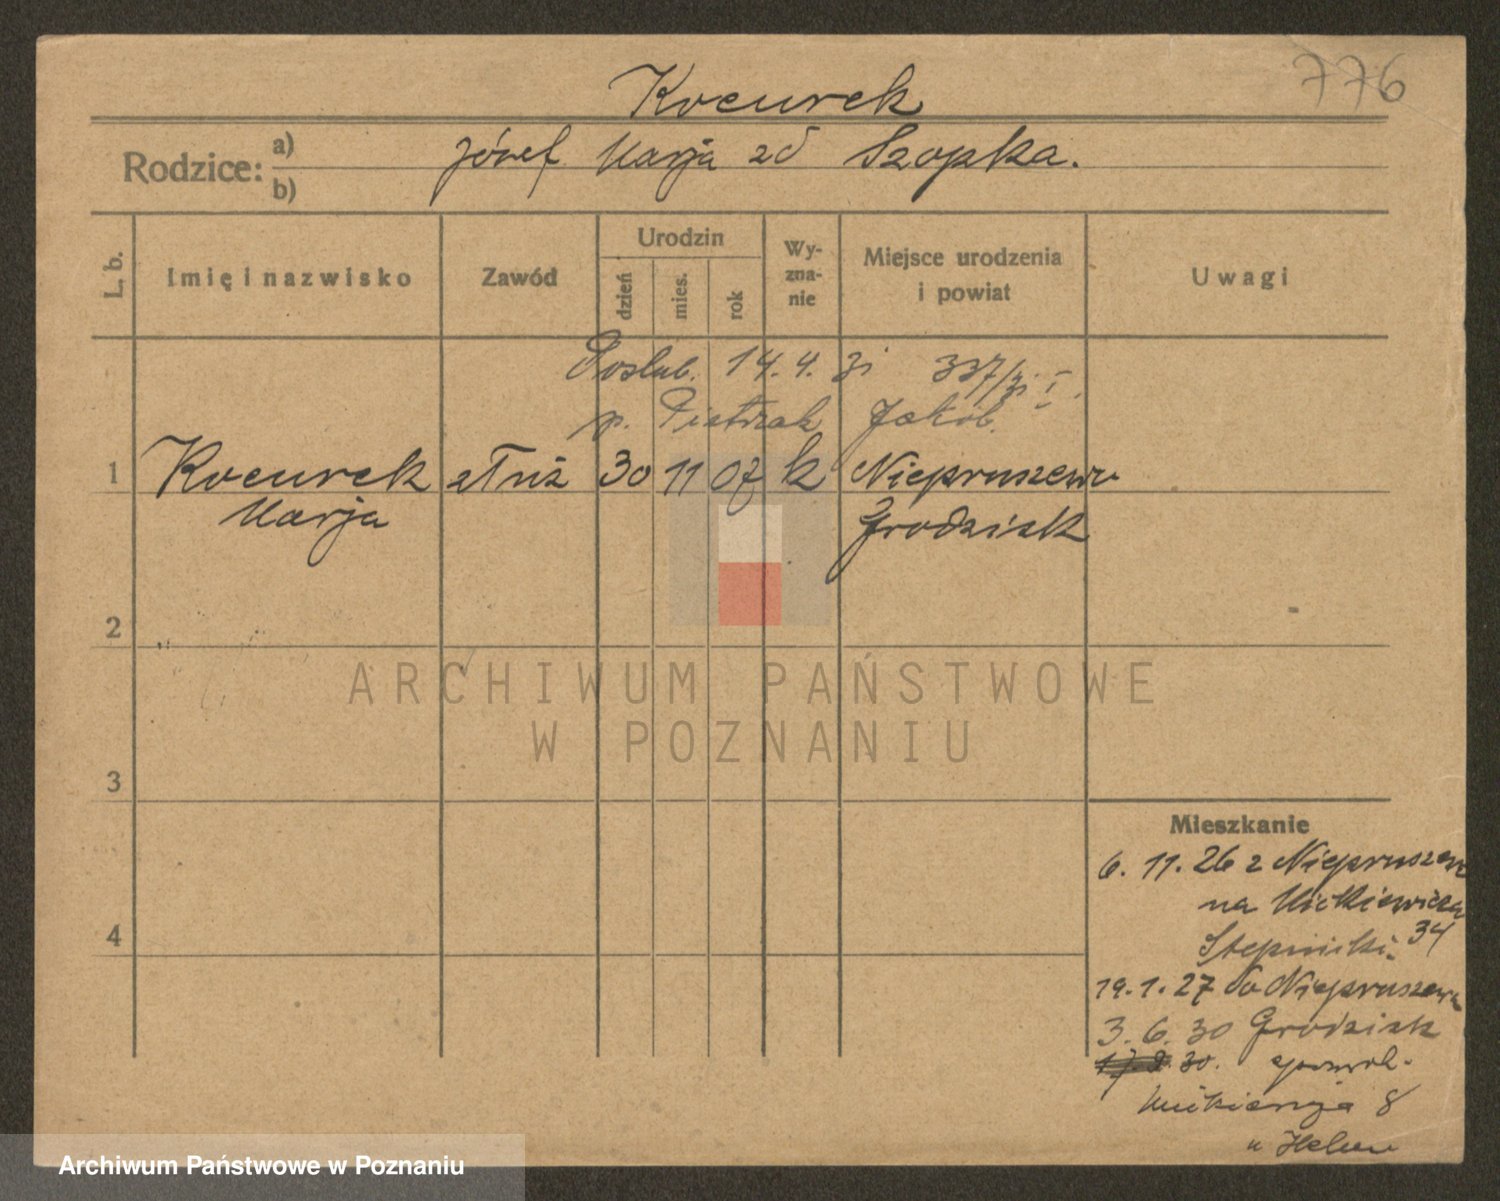 776
Kocurek
Rodzice: a) b)
Józef Marja zd Szopka.
L. b.
Imię i nazwisko
Zawód
Urodzin
dzień
mies.
rok
Wy-
zna-
nie
Miejsce urodzenia
i powiat
Uwagi
Poślub. 14. 4. 31 337/31 I.
p. Pietrzak Jakób.
1 Kocurek służ 30 11 07 k Niepruszewo
Marja Grodzisk
2
ARCHIWUM PAŃSTWOWE
W POZNANIU
3
Mieszkanie
6. 11. 26 z Niepruszewa
na Mickiewicza
34
4
19. 1. 27 do Niepruszewa
3. 6. 30 Grodzisk
30.
8
u
Archiwum Państwowe w Poznaniu